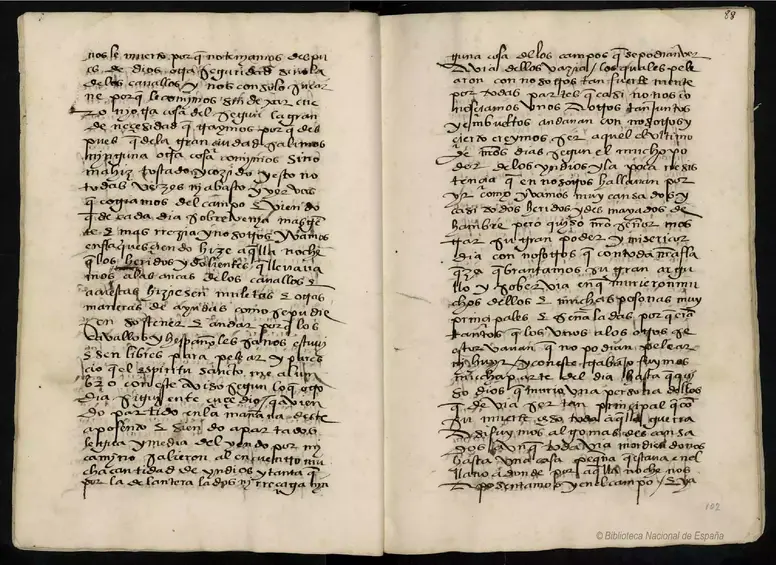 nos le muerto porque no teniamos despu
es de dios otra seguridad sino la
de los cavallos y nos consolo su car
ne porque la comimos sin dexar cue
ro ni otra cosa del segun la gran
de necesidad que trayamos porque des
pues que de la gran ciudad salimos
ninguna otra cosa comimos sino
mahiz tostado y cozido y esto no
todas vezes ni abasto y yervas
que cogiamos del campo E viendo
que de cada dia sobrevenia mas gen
te E mas rrezia y nosotros yvamos
enflaqueciendo hize aquella noche
que los heridos y dolientes que llevava
mos a las ancas de los cavallos E
acuestas hiziesen muletas E otras
maneras de ayudas como se pudie
sen sostener E andar porque los
cavallos y españoles sanos estuvi
esen libres para pelear y pares
cio que el espiritu santo me alun
bro con este aviso segun lo que otro
dia siguiente sucedio que avien
do partido en la mañana deste
aposento E siendo apartados
legua y media del yendo por mi
camino salieron al encuentro mu
cha cantidad de yndios y tanta que
por la delantera lados ni rrezaga nin
88
guna cosa de los campos que se podian ver
avia dellos vazia los quales pele
aron con nosotros tan fuertemente
por todas partes que casi no nos co
nosciamos unos a otros tan juntos
y enbueltos andavan con nosotros y
cierto creymos ser aquel el ultimo
de nuestros dias segun el mucho po
der de los yndios y la poca rresis
tencia que en nosotros hallavan por
yr como yvamos muy cansados y
casi todos heridos y desmayados de
hambre pero quiso nuestro señor mos
trar su gran poder y misericor
dia con nosotros que con toda nuestra fla
queza quebrantamos su gran orgu
llo y sobervia en que murieron mu
chos dellos E muchas personas muy
principales E señaladas porque eran
tantos que los unos a los otros se
estorvavan que no podian pelear
ni huyr y con este trabajo fuymos
mucha parte del dia hasta que qui
so dios que murio una persona dellos
que devia ser tan principal que con
su muerte ceso toda aquella guerra
asi fuymos algo mas descansa
dos aunque todavia mordiendonos
hasta una casa pequeña que estava en el
llano adonde por aquella noche nos
aposentamos y en el campo E ya
102
© Biblioteca Nacional de España